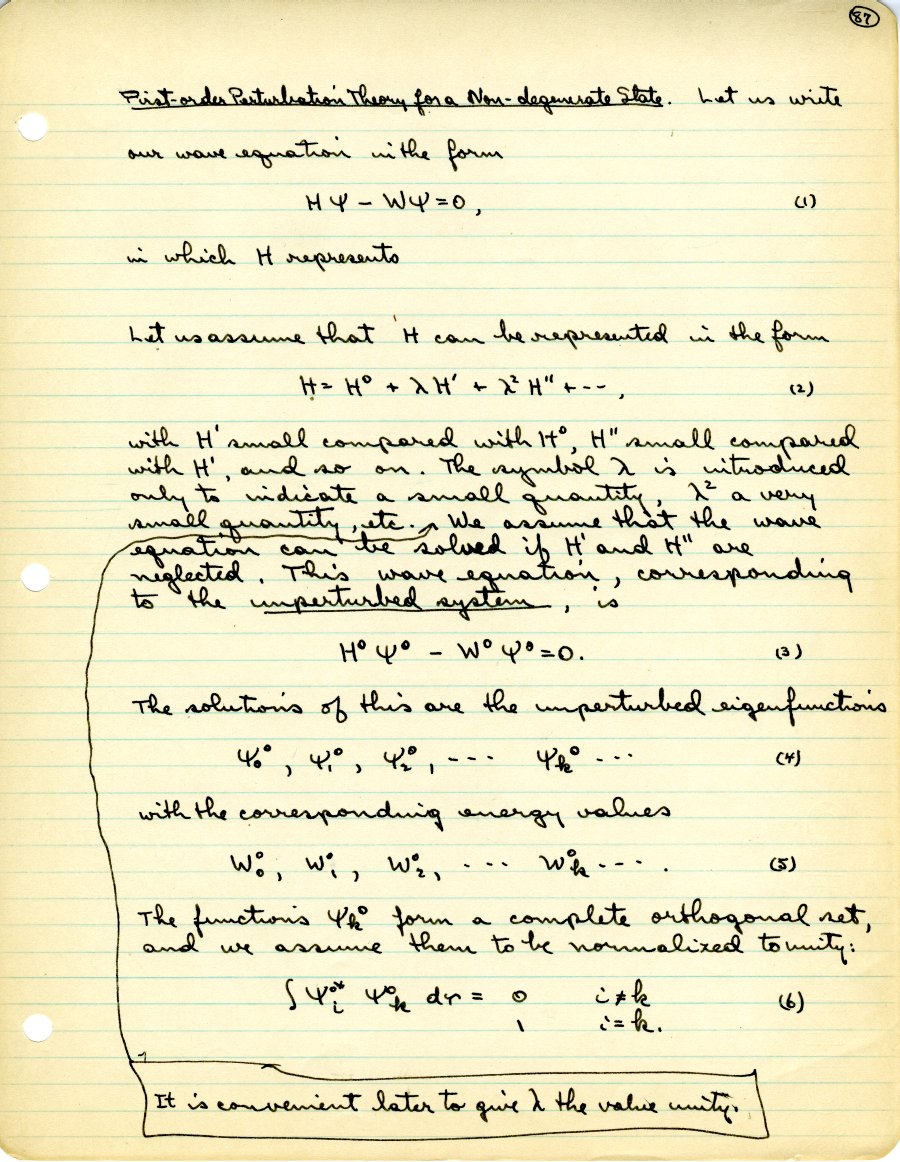 87
First-order Perturbation Theory for a Non-degenerate State. Let us write
our wave equation in the form
HΨ – WΨ = 0, (1)
in which H represents
Let us assume that H can be represented in the form
H = H⁰ + λH′ + λ²H″ + --- , (2)
with H′ small compared with H⁰, H″ small compared
with H′, and so on. The symbol λ is introduced
only to indicate a small quantity, λ² a very
small quantity, etc. We assume that the wave
equation can be solved if H′ and H″ are
neglected. This wave equation, corresponding
to the unperturbed system, is
H⁰Ψ⁰ – W⁰Ψ⁰ = 0. (3)
The solutions of this are the unperturbed eigenfunctions
Ψ₀⁰, Ψ₁⁰, Ψ₂⁰, --- Ψₖ⁰ --- (4)
with the corresponding energy values
W₀⁰, W₁⁰, W₂⁰, --- Wₖ⁰ --- . (5)
The functions Ψₖ⁰ form a complete orthogonal set,
and we assume them to be normalized to unity:
∫ Ψᵢ⁰* Ψₖ⁰ dτ = 0 i ≠ k (6)
1 i = k.
It is convenient later to give λ the value unity.